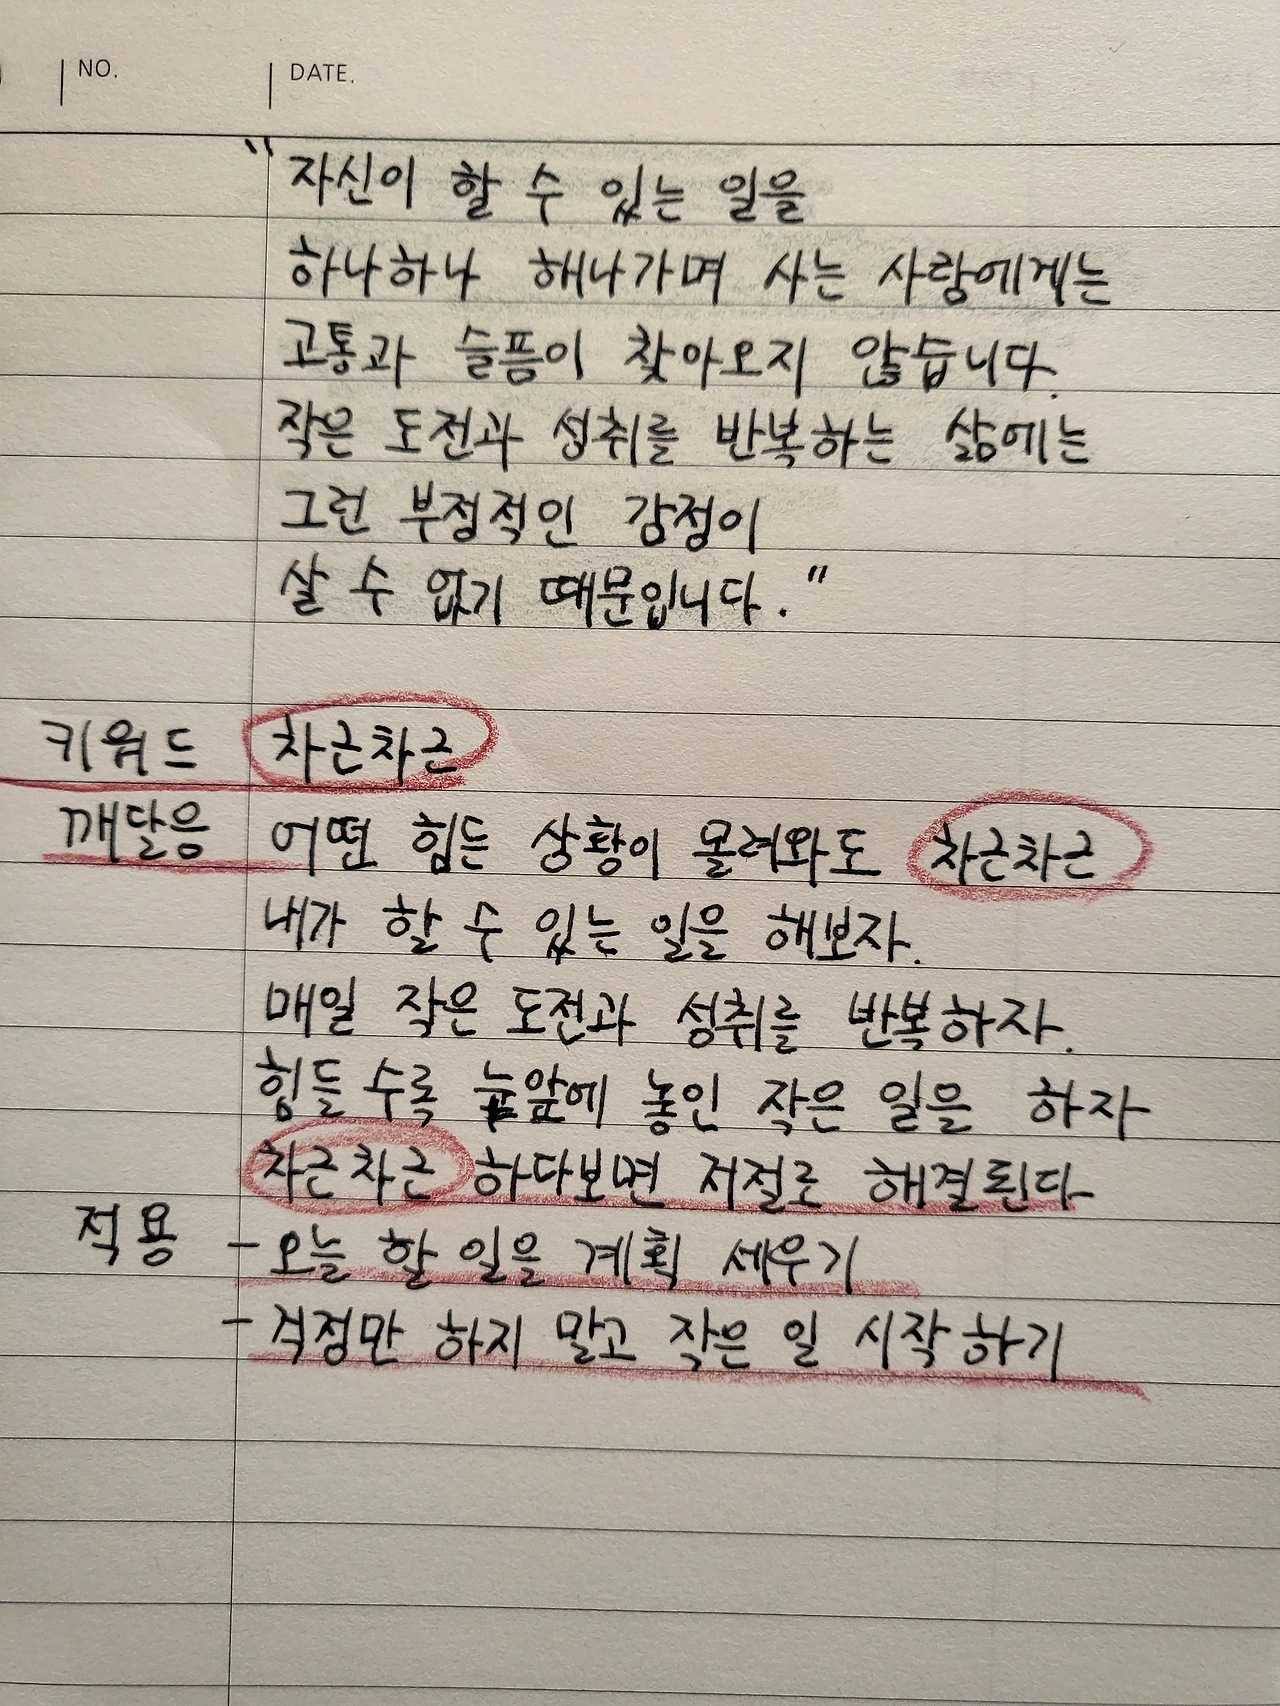 NO. DATE.
"자신이 할 수 있는 일을
하나하나 해나가며 사는 사람에게는
고통과 슬픔이 찾아오지 않습니다.
작은 도전과 성취를 반복하는 삶에는
그런 부정적인 감정이
살 수 없기 때문입니다."
키워드 차근차근
깨달음 어떤 힘든 상황이 몰려와도 차근차근
내가 할 수 있는 일을 해보자.
매일 작은 도전과 성취를 반복하자.
힘들수록 눈앞에 놓인 작은 일을 하자
차근차근 하다보면 저절로 해결된다
적용 - 오늘 할 일을 계획 세우기
- 걱정만 하지 말고 작은 일 시작하기